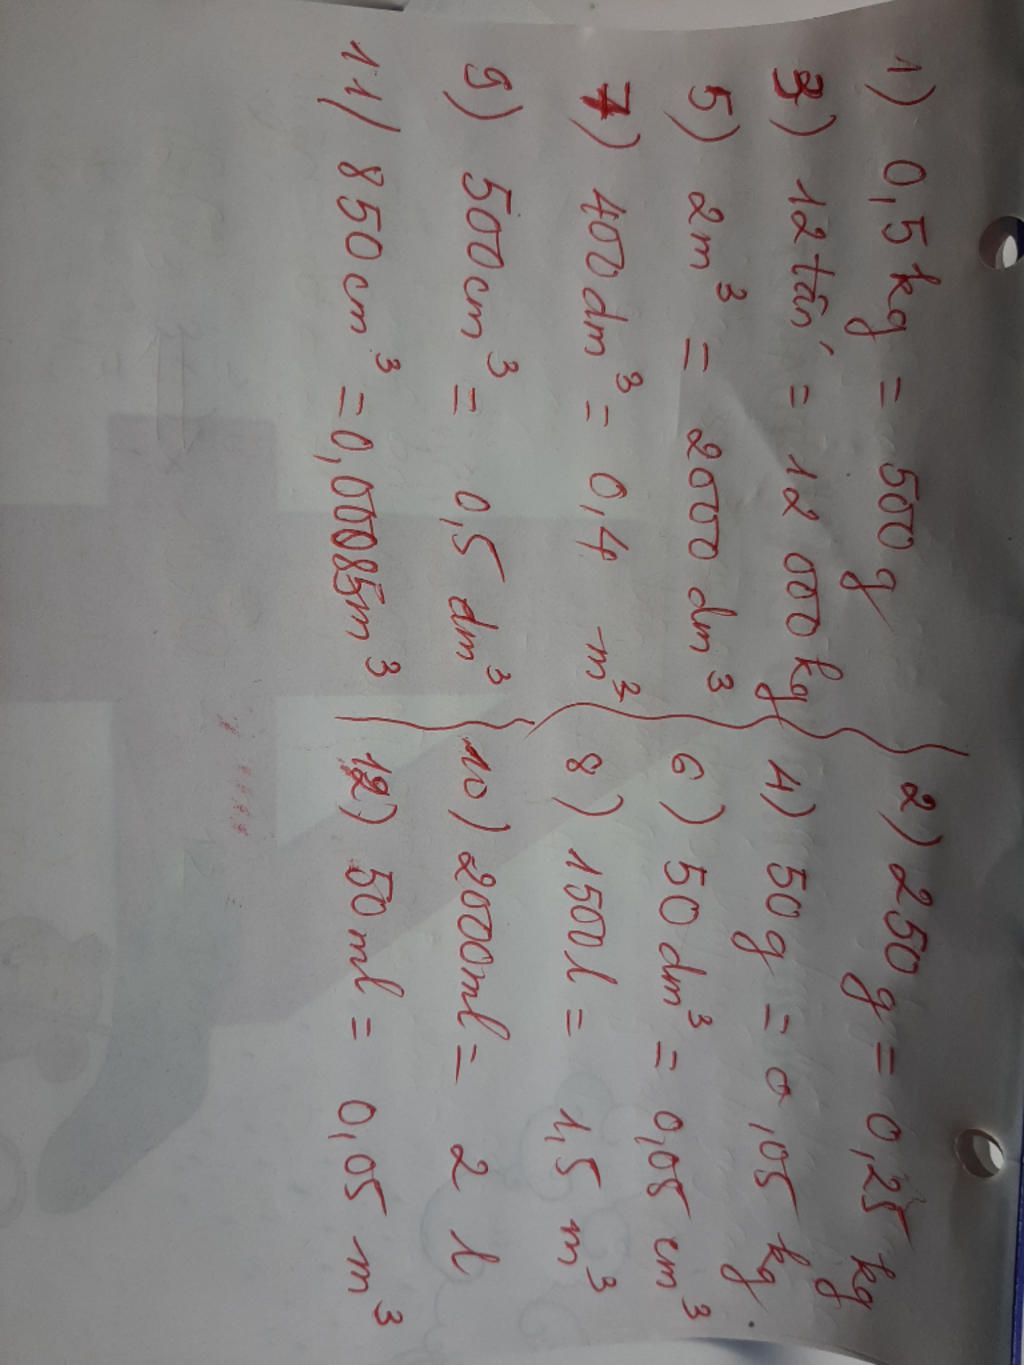 1) 0,5 kg = 500 g
2) 250 g = 0,25 kg
3) 12 tấn = 12 000 kg
4) 50 g = 0,05 kg
5) 2m³ = 2000 dm³
6) 50 dm³ = 0,05 cm³
7) 400 dm³ = 0,4 m³
8) 1500 l = 1,5 m³
9) 500 cm³ = 0,5 dm³
10) 2000 ml = 2 l
11) 850 cm³ = 0,00085 m³
12) 50 ml = 0,05 m³